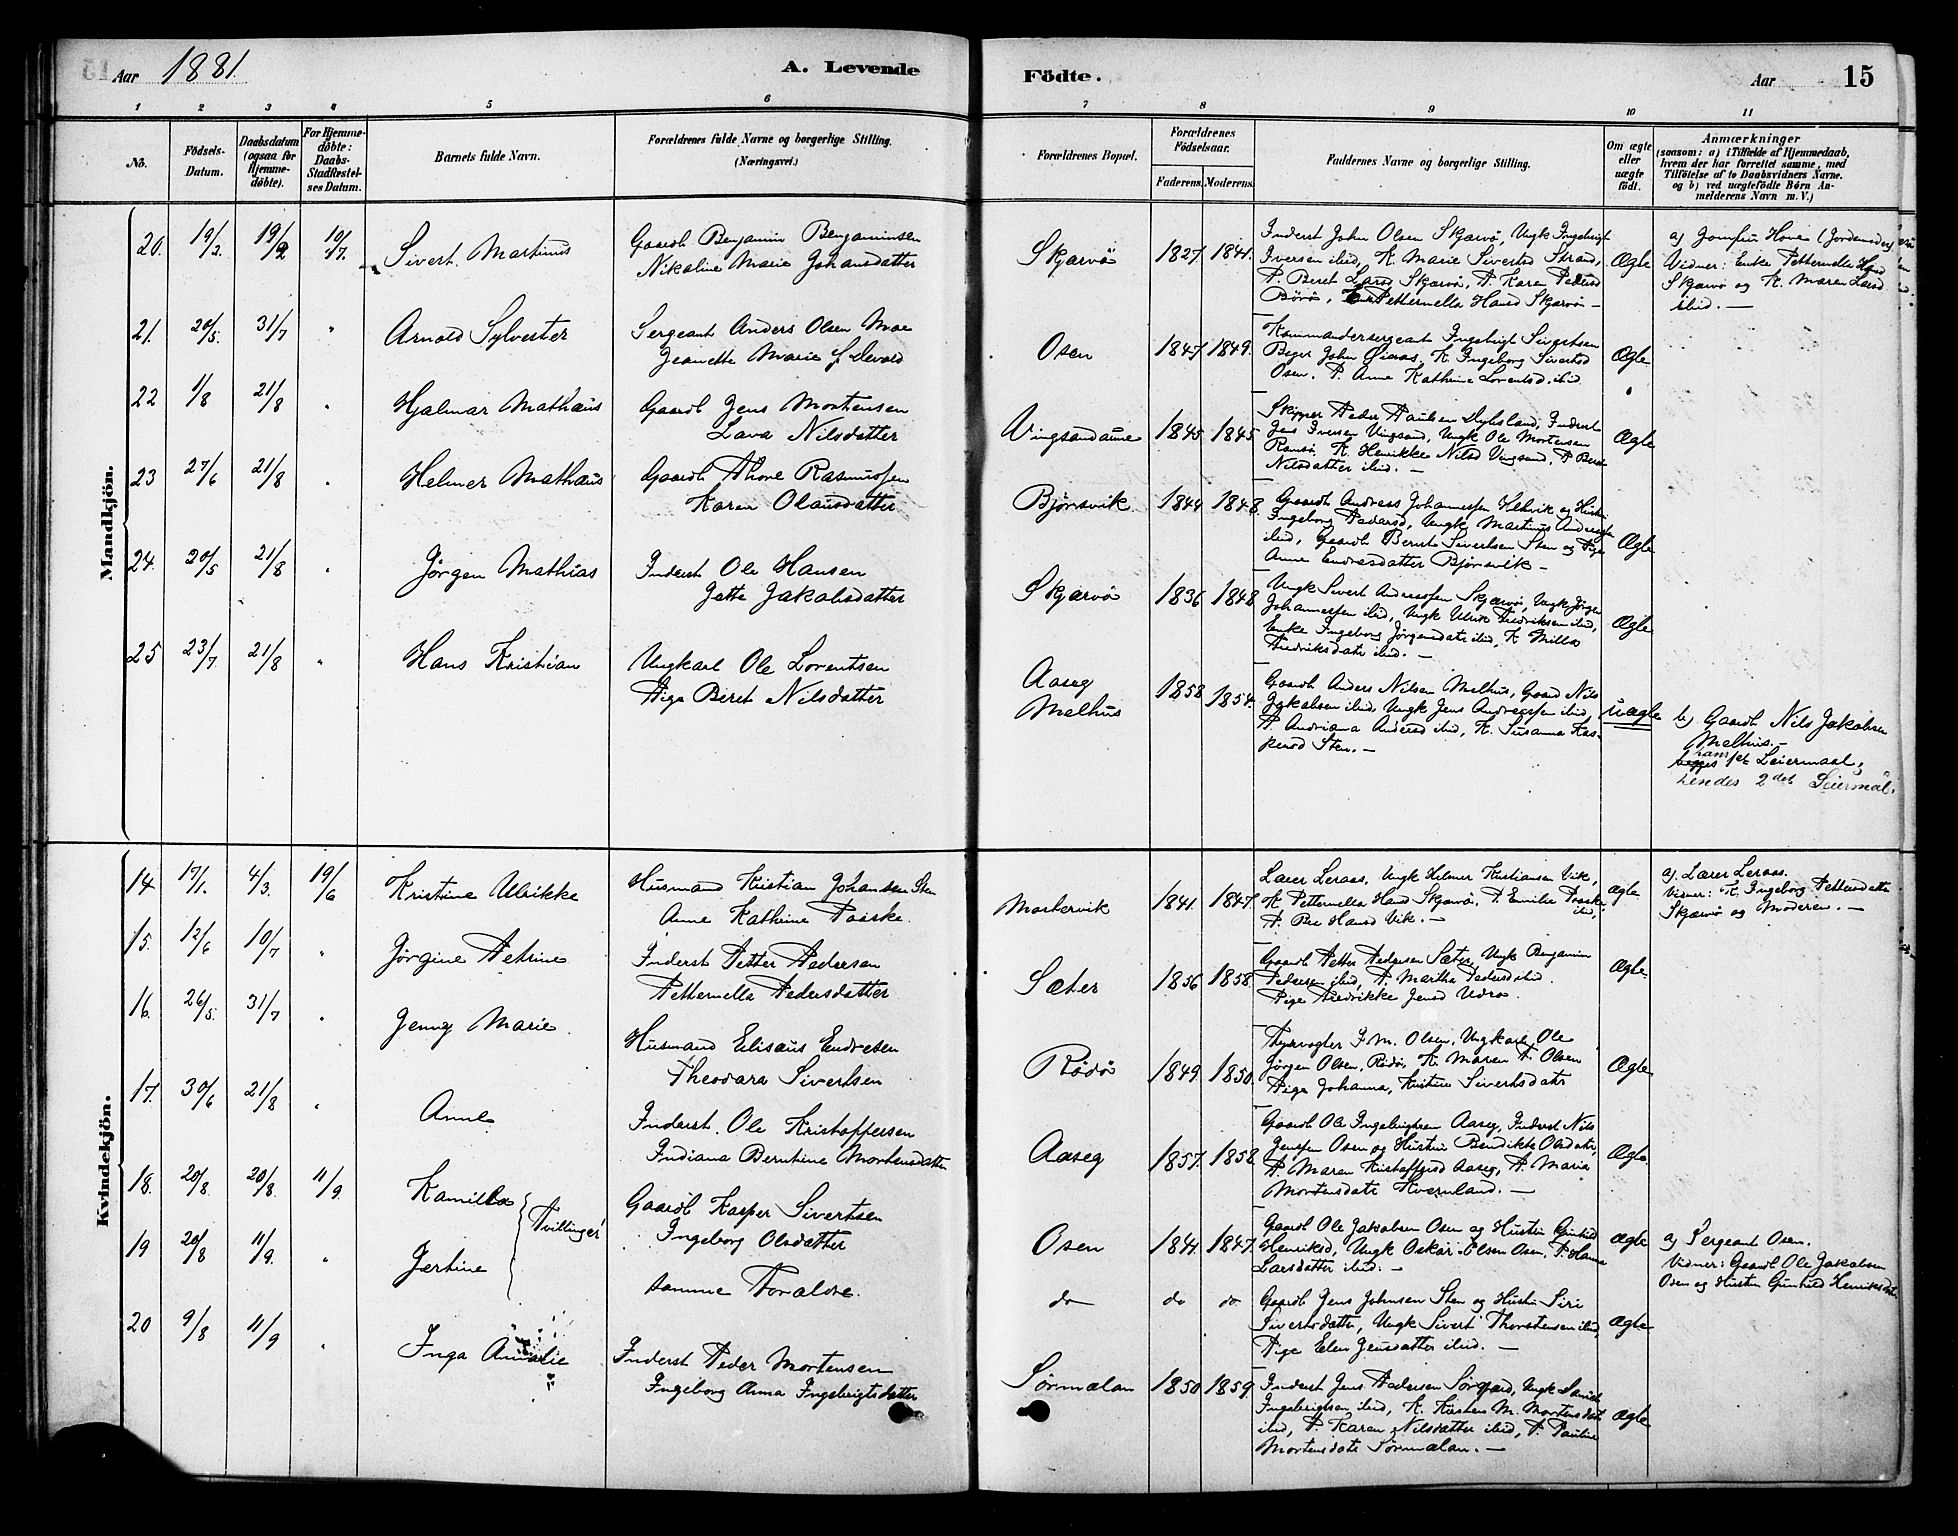 Aar 1881.
A. Levende
Födte.
Aar
15
1 2 3 4 5 6 7 8 9 10 11
No.
Födsels-
Datum.
Daabsdatum
(ogsaa for
Hjemme-
döbte).
For Hjemme-
döbte:
Daabs-
Stadfæstel-
ses Datum.
Barnets fulde Navn.
Forældrenes fulde Navne og borgerlige Stilling.
(Næringsvei.)
Forældrenes Bopæl.
Forældrenes
Födselsaar.
Faderens.
Moderens.
Faddernes Navne og borgerlige Stilling.
Om ægte
eller
uægte
födt.
Anmærkninger
(saasom: a) i Tilfælde af Hjemmedaab,
hvem der har forrettet samme, med
Tilföielse af to Daabsvidners Navne.
og b) ved uægtefödte Börn An-
melderens Navn m. V.)
Mandkjön.
20. 19/2. 19/2 10/7. Sivert Martinus
Gaardb Benjamin Benjaminsen
Nikoline Marie Johansdatter
Skjærvö 1827. 1841.
Inderst John Olsen Skjærvö, Ungk Ingebrigt
Iversen ibid, K. Marie Sivertsd Strand,
P. Beret Larsd Skjærvö, P. Karen Pedersd
Börö, Enke Petternella Hansd Skjærvö —
Ægte
a) Jomfru Hoven (Jordemoder)
Vidner: Enke Petternella Hansd
Skjærvö og K. Maren Larsd
ibid. —
21. 20/5. 31/7 " Arnold Sylvester
Sergeant Anders Olsen Moe
Jeanette Marie f. Devold
Osen 1847. 1849.
Kommandersergeant Ingebrigt Sivertsen
John Öiaas, K. Ingeborg Sivertsd
Osen. P. Anne Kathrine Lorentsd. ibid.
Ægte
22 1/8 21/8 " Hjalmar Mathæus
Gaardb Jens Mortensen
Lava Nilsdatter
Vingsandaune 1845. 1845.
Skipper Peder Paulsen, Inderst
Jens Iversen Vingsand, Ungk Ole Mortensen
Ramsö K. Henrikke Nilsd Vingsand, P. Beret
Nilsdatter ibid. —
Ægte
23 27/6 21/8 " Helmer Mathæus
Gaardb Thore Rasmussen
Karen Olausdatter
Bjørsvik 1844 1848.
Gaardb Andreas Johannessen Helvik og Hustru
Ingeborg Pedersd, Ungk Martinus Andreassen
ibid, Gaardb Bernt Sivertsen Sten og Pige
Anne Endresdatter Bjørsvik —
Ægte
24. 20/5 21/8 " Jörgen Mathias
Inderst Ole Hansen
Jette Jakobsdatter
Skjærvö 1836 1848
Ungk Sivert Andreassen Skjærvö, Ungk Jörgen
Johannessen ibid, Ungk Ulrik Fredriksen ibid,
Enke Ingeborg Jörgensdatr ibid, K. Milla
Fredriksdatr ibid. —
Ægte
25 23/7 21/8 " Hans Kristian
Ungkarl Ole Lorentsen
Pige Beret Nilsdatter
Aaseg
Melhus 1858 1854.
Gaardb Anders Nilsen Melhus, Gaardb Nils
Jakobsen ibid, Ungk Jens Andreassen ibid,
P. Andriana Andersd ibid, K. Susanna Kas-
persd Sten. —
uægte
b) Gaardb Nils Jakobsen
Melhus. —
hans 1ste Leiermaal,
hendes 2det Leiermål.
Kvindekjön.
14 17/1. 4/3. 19/6 Kristine Ulrikke
Husmand Kristian Johansen Sten
Anne Kathrine Paaske.
Mortervik 1841. 1847.
Lærer Leraas, Ungk Helmer Kristiansen Vik,
K. Petternella Hansd Skjærvö, P. Emilie Paaske
ibid,
P. Hansd Vik. —
ægte
a). Lærer Leraas.
Vidner: K. Ingeborg Pettersdatr
Skjærvö og Moderen. —
15. 12/6 10/7 " Jörgine Petrine
Inderst Petter Pedersen
Petternella Pedersdatter
Sæter 1856 1858.
Gaardb Petter Pedersen Sæter, Ungk Benjamin
Pedersen ibid, P. Martha Pedersd ibid.
Pige Fredrikke Jensd Udrö.
Ægte
16. 26/5. 31/7 " Jenny Marie.
Husmand Elisæus Endresen
Theodora Sivertsen
Rödö 1849. 1850.
Fyrvogter I. M. Olsen, Ungkarl Ole
Jörgen Olsen, Rödö, K. Maren P. Olsen
Pige Johanna, Kristine Sivertsdatr
Ægte
17. 30/6 21/8 " Anne
Inderst. Ole Kristoffersen
Indiana Berntine Mortensdatter
Aaseg 1857. 1858.
Gaardb Ole Ingebrigtsen Aaseg, Inderst Nils
Jenssen Osen og Hustru Bendikte Olsdatr,
P. Maren Kristoffersd Aaseg, P. Maria
Mortensdatr Kvernland. —
Ægte.
18. 20/8. 20/8. 11/9. Kamilla
Tvillinger
Gaardb Kasper Sivertsen
Ingeborg Olsdatter
Osen 1841. 1847.
Gaardb Ole Jakobsen Osen og Hustru Gunhild
Henriksd, Ungk Oskar Olsen Osen, P. Hanna
Larsdatter ibid. —
ægte
a) Sergeant Osen.
Vidner: Gaardb Ole Jakobsen
Osen og Hustru Gunhild Henriksdatr
19 20/8 11/9. " Jertine
samme Forældre.
do do do.
Gaardb Jens Johnsen Sten og Hustru Siri
Sivertsdatter, Ungk Sivert Thorstensen ibid,
Pige Elen Jensdatter ibid. —
Ægte
20 9/8 11/9 " Inga Amalie
Inderst Peder Mortensen
Ingeborg Anna Ingebrigtsdatter
Sörmelan 1850 1859.
Inderst Jens Pedersen Sörgjerd, Ungk
Ingebrigtsen ibid, K. Kirsten M. Mortensdatr
ibid, P. Karen Nilsdatter ibid, P. Pauline
Mortensdatr Sörmelan. —
Ægte